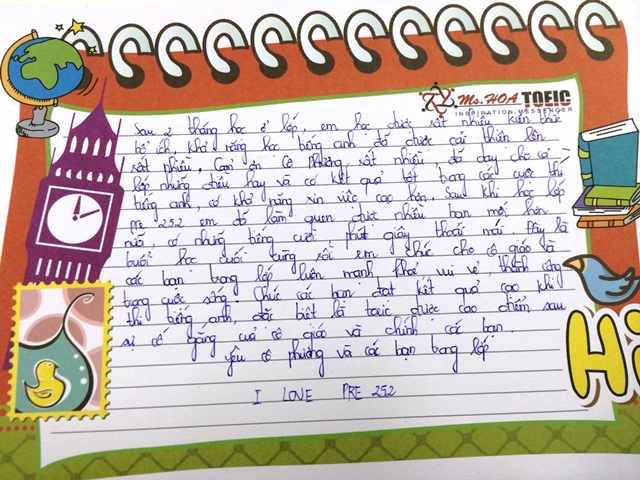 Ms. HOA TOEIC
INSPIRATION MESSENGER
Sau 2 tháng học ở lớp, em học được rất nhiều kiến thức
bổ ích, khả năng học tiếng anh đã được cải thiện lên
rất nhiều, Cảm ơn Cô Phương rất nhiều, đã dạy cho cả
lớp những điều hay và có kết quả tốt trong các cuộc thi
tiếng anh, có khả năng xin việc cao hơn. Sau khi học lớp
pre 252 em đã làm quen được nhiều bạn mới hơn
nữa, có những tiếng cười phút giây thoải mái. Đây là
buổi học cuối cùng rồi em chúc cho cô giáo và
các bạn trong lớp luôn mạnh khoẻ vui vẻ, thành công
trong cuộc sống. Chúc các bạn đạt kết quả cao khi
thi tiếng anh, đặc biệt là toeic được cao điểm sau
sự cố gắng của cô giáo và chính các bạn.
yêu cô phương và các bạn trong lớp
I LOVE PRE 252
Hi